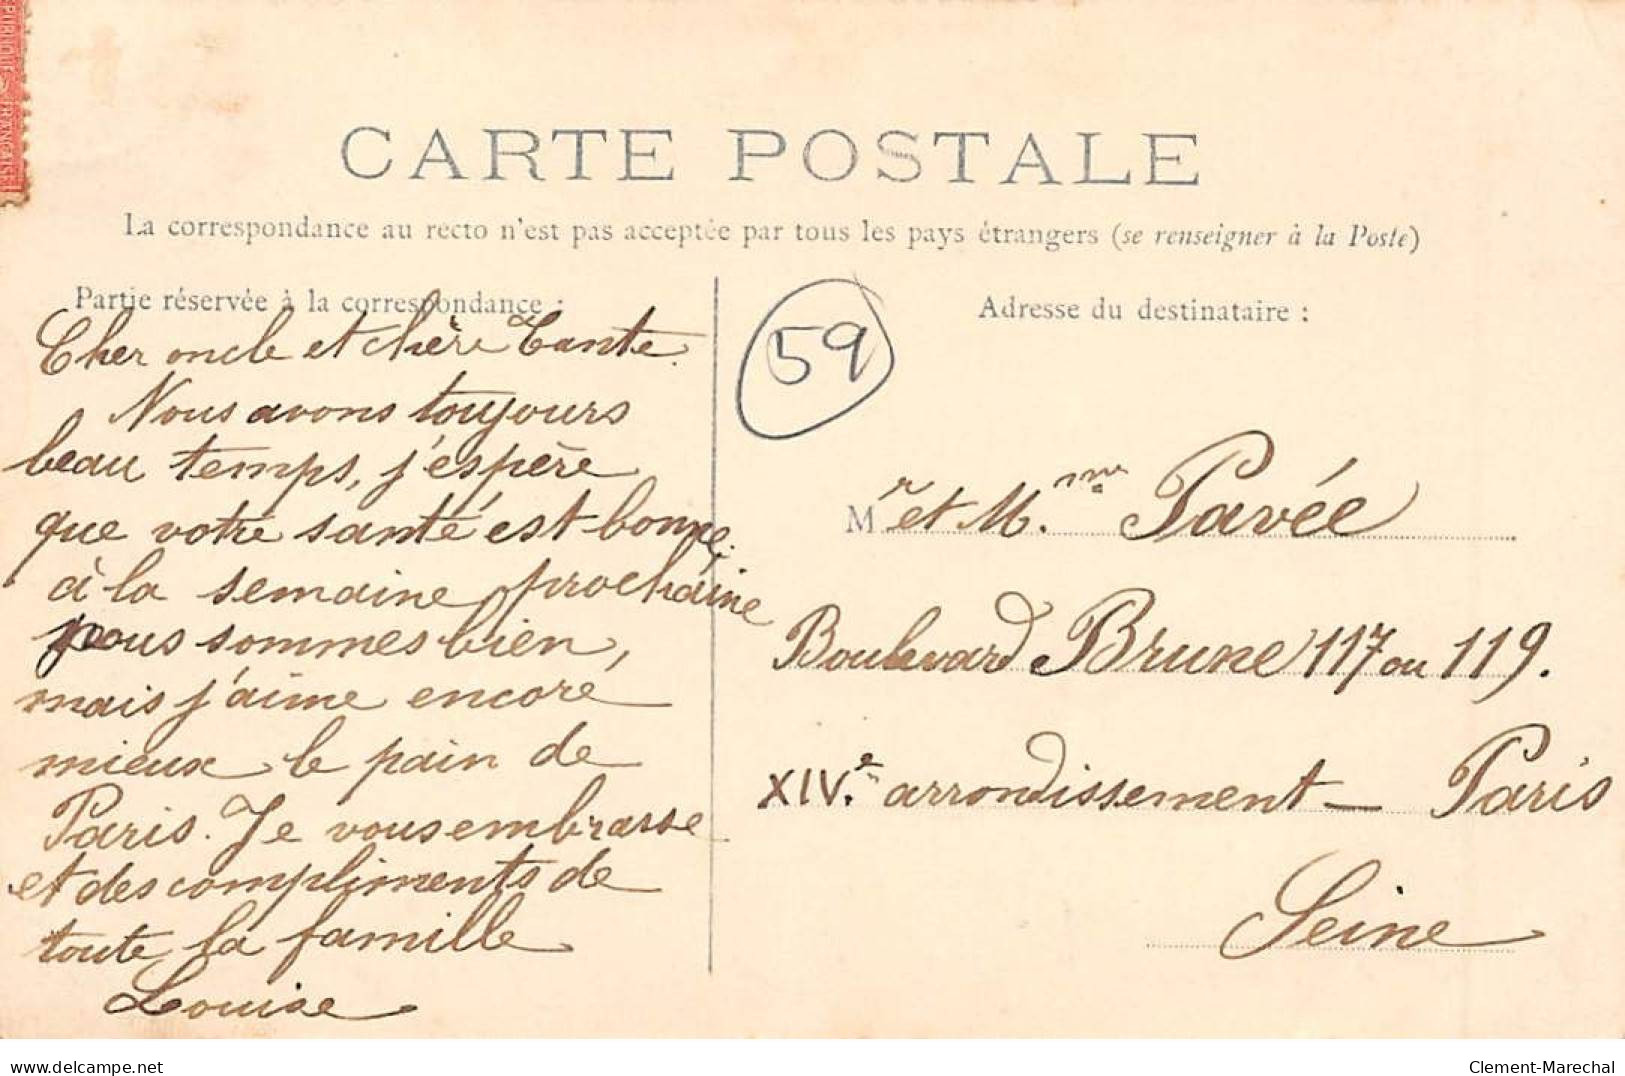 PUBLIQUE FRANÇAISE
CARTE POSTALE
La correspondance au recto n'est pas acceptée par tous les pays étrangers (se renseigner à la Poste)
Partie réservée à la correspondance :
Cher oncle et chère Tante.
Nous avons toujours
beau temps, j'espère
que votre santé est bonne,
à la semaine prochaine
nous sommes bien,
mais j'aime encore
mieux le pain de
Paris. Je vous embrasse
et des compliments de
toute la famille
Louise
59
Adresse du destinataire :
Mr et M.me Pavée
Boulevard Brune 117 ou 119.
XIV.e arrondissement - Paris
Seine
delcampe.net
Clement-Marechal